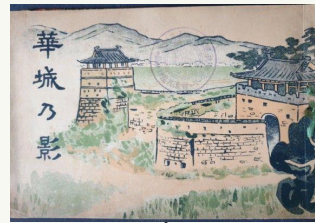 華城乃影